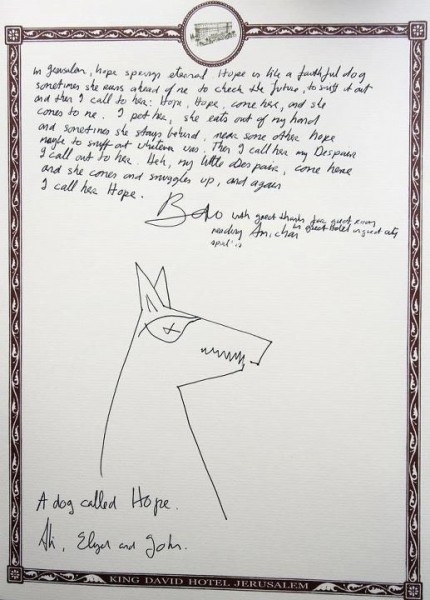 in Jerusalem, hope springs eternal. Hope is like a faithful dog
sometimes she runs ahead of me to check the future, to sniff it out
and then I call to her: Hope, Hope, come here, and she
comes to me. I pet her, she eats out of my hand
and sometimes she stays behind, near some other hope
maybe to sniff out whatever was. Then I call her my Despair
I call out to her. Heh, my little Despair, come here
and she comes and snuggles up, and again
I call her Hope.
Bono with great thanks for great room
reading Amichai in great hotel in great city
april
A dog called Hope.
Ali, and John.
KING DAVID HOTEL JERUSALEM